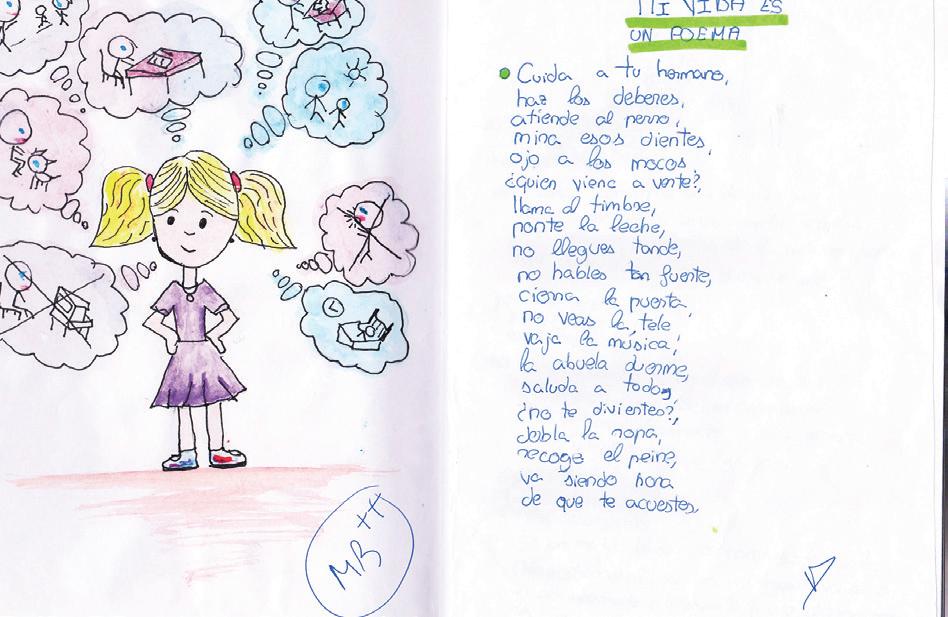 MB++
MI VIDA ES
UN POEMA
Cuida a tu hermano,
haz los deberes,
atiende al perro,
mira esos dientes,
ojo a los mocos,
¿quien viene a verte?,
llama al timbre,
ponte la leche,
no llegues tarde,
no hables tan fuerte,
cierra la puerta,
no veas la tele
vaja la música,
la abuela duerme,
saluda a todos,
¿no te diviertes?,
dobla la ropa,
recoge el peine,
va siendo hora
de que te acuestes,